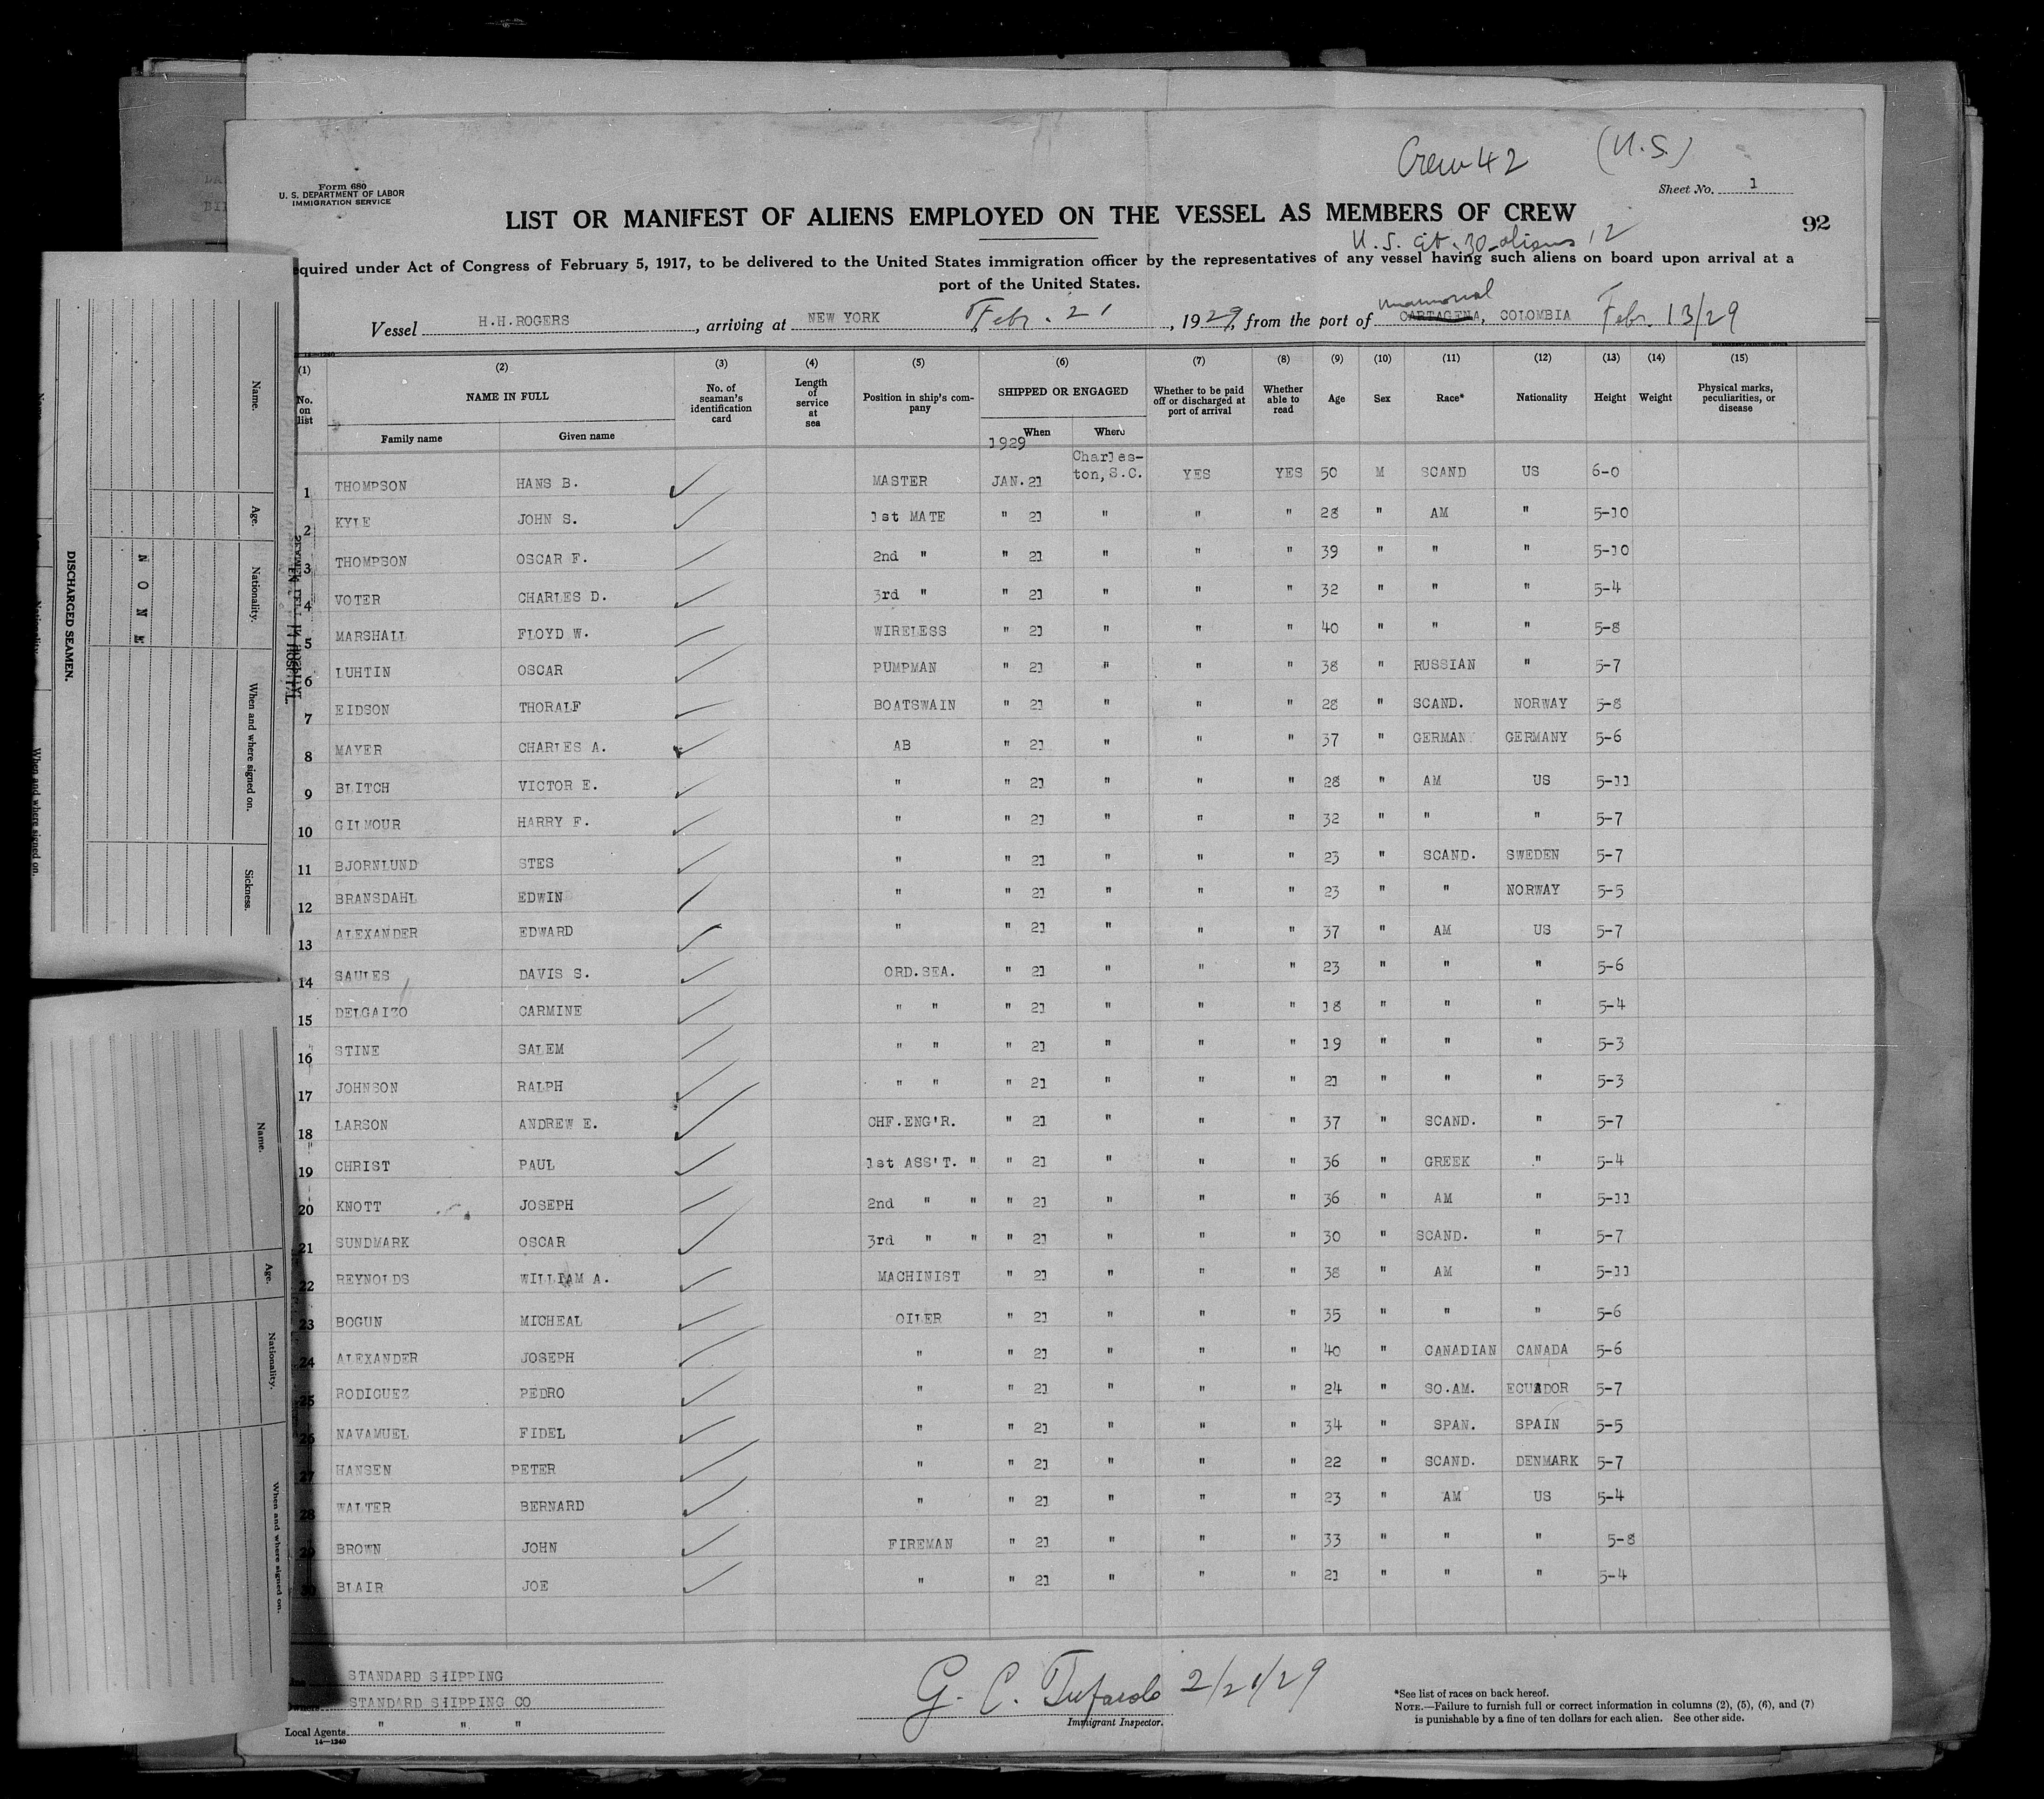 Crew 42 (U.S.)
Form 680
U. S. DEPARTMENT OF LABOR
IMMIGRATION SERVICE
Sheet No. 1
LIST OR MANIFEST OF ALIENS EMPLOYED ON THE VESSEL AS MEMBERS OF CREW
92
U.S. cit. 30 aliens 12
equired under Act of Congress of February 5, 1917, to be delivered to the United States immigration officer by the representatives of any vessel having such aliens on board upon arrival at a
port of the United States.
Vessel H.H.ROGERS, arriving at NEW YORK Febr. 21, 1929, from the port of CARTAGENA, COLOMBIA Febr. 13/29
(1) (2) (3) (4) (5) (6) (7) (8) (9) (10) (11) (12) (13) (14) (15)
No. on list NAME IN FULL No. of seaman's identification card Length of service at sea Position in ship's company SHIPPED OR ENGAGED Whether to be paid off or discharged at port of arrival Whether able to read Age Sex Race* Nationality Height Weight Physical marks, peculiarities, or disease
Family name Given name When Where
1929
1 THOMPSON HANS B. MASTER JAN. 21 Charles-ton, S.C. YES YES 50 M SCAND US 6-0
2 KYLE JOHN S. 1st MATE " 21 " " " 28 " AM " 5-10
3 THOMPSON OSCAR F. 2nd " " 21 " " " 39 " " " 5-10
4 VOTER CHARLES D. 3rd " " 21 " " " 32 " " " 5-4
5 MARSHALL FLOYD W. WIRELESS " 21 " " " 40 " " " 5-8
6 LUHTIN OSCAR PUMPMAN " 21 " " " 38 " RUSSIAN " 5-7
7 EIDSON THORALF BOATSWAIN " 21 " " " 28 " SCAND. NORWAY 5-8
8 MAYER CHARLES A. AB " 21 " " " 37 " GERMAN GERMANY 5-6
9 BLITCH VICTOR E. " " 21 " " " 28 " AM US 5-11
10 GILMOUR HARRY F. " " 21 " " " 32 " " " 5-7
11 BJORNLUND STES " " 21 " " " 23 " SCAND. SWEDEN 5-7
12 BRANSDAHL EDWIN " " 21 " " " 23 " " NORWAY 5-5
13 ALEXANDER EDWARD " " 21 " " " 37 " AM US 5-7
14 SAULES DAVIS S. ORD.SEA. " 21 " " " 23 " " " 5-6
15 DELGAIZO CARMINE " " " 21 " " " 18 " " " 5-4
16 STINE SALEM " " " 21 " " " 19 " " " 5-3
17 JOHNSON RALPH " " " 21 " " " 21 " " " 5-3
18 LARSON ANDREW E. CHF.ENG'R. " 21 " " " 37 " SCAND. " 5-7
19 CHRIST PAUL 1st ASS'T. " " 21 " " " 36 " GREEK " 5-4
20 KNOTT JOSEPH 2nd " " " 21 " " " 36 " AM " 5-11
21 SUNDMARK OSCAR 3rd " " " 21 " " " 30 " SCAND. " 5-7
22 REYNOLDS WILLIAM A. MACHINIST " 21 " " " 38 " AM " 5-11
23 BOGUN MICHEAL OILER " 21 " " " 35 " " " 5-6
24 ALEXANDER JOSEPH " " 21 " " " 40 " CANADIAN CANADA 5-6
25 RODIGUEZ PEDRO " " 21 " " " 24 " SO.AM. ECUADOR 5-7
26 NAVAMUEL FIDEL " " 21 " " " 34 " SPAN. SPAIN 5-5
27 HANSEN PETER " " 21 " " " 22 " SCAND. DENMARK 5-7
28 WALTER BERNARD " " 21 " " " 23 " AM US 5-4
29 BROWN JOHN FIREMAN " 21 " " " 33 " " " 5-8
30 BLAIR JOE " " 21 " " " 21 " " " 5-4
STANDARD SHIPPING
Owners STANDARD SHIPPING CO
Local Agents " " "
14—1240
G. C. 2/21/29
Immigrant Inspector.
*See list of races on back hereof.
NOTE.—Failure to furnish full or correct information in columns (2), (5), (6), and (7)
is punishable by a fine of ten dollars for each alien. See other side.
DISCHARGED SEAMEN.
Name. Age. Nationality. When and where signed on. Sickness.
NONE
Name. Age. Nationality. When and where signed on.